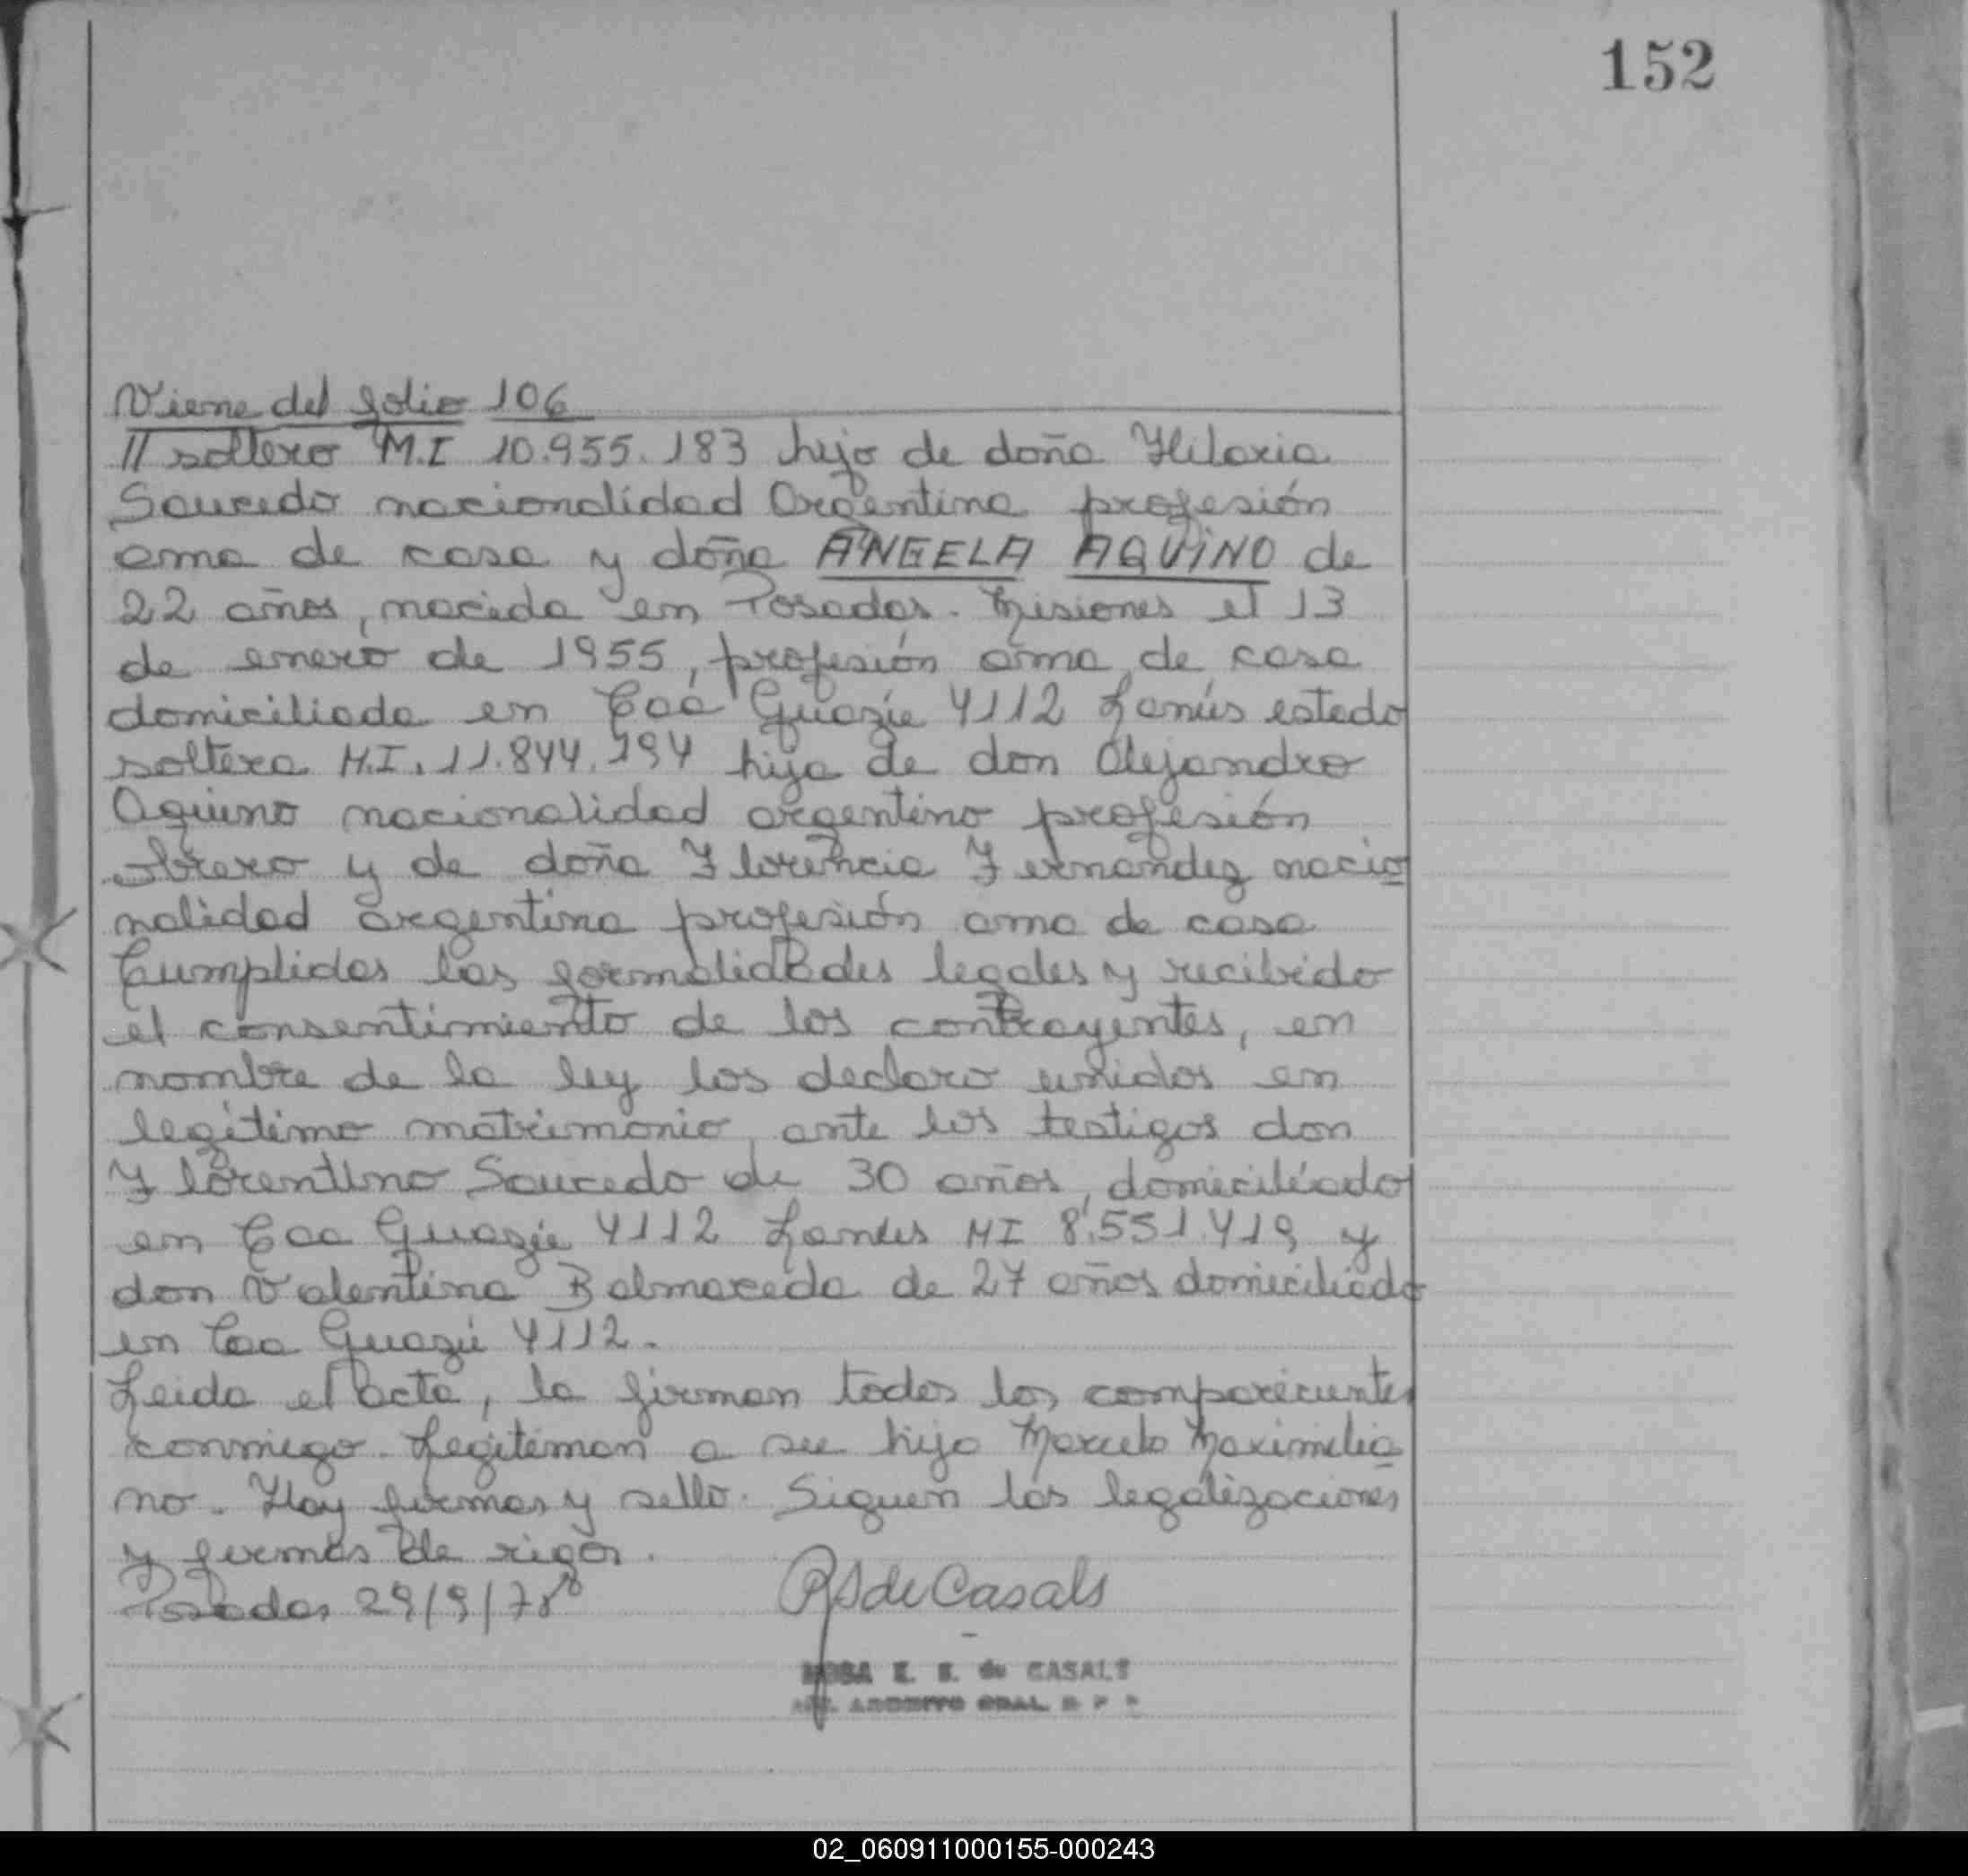 152
Viene del folio 106
// soltero M.I 10.955.183 hijo de doña Hilaria
Saucedo nacionalidad Argentina profesión
ama de casa y doña ANGELA AQUINO de
22 años, nacida en Posadas. Misiones el 13
de enero de 1955, profesión ama de casa
domiciliada en Caá Guazú 4112 Lanús estado
soltera M.I. 11.844.194 hija de don Alejandro
Aquino nacionalidad argentino profesión
obrero y de doña Florencia Fernandez nacio
nalidad argentina profesión ama de casa
Cumplidas las formalidades legales y recibido
el consentimiento de los contrayentes, en
nombre de la ley los declaro unidos en
legítimo matrimonio, ante los testigos don
Florentino Saucedo de 30 años, domiciliado
en Caa Guazú 4112 Lanus MI 8.551.419 y
don Valentina Balmaceda de 27 años domiciliado
en Caa Guazú 4112.
Leida el acta, la firman todos los comparecientes
conmigo. Legitiman a su hijo Marcelo Maximilia
no. Hay firmas y sello. Siguen las legalizaciones
y firmas de rigor.
Posadas 29/9/78
RS de Casals
ROSA E. S. de CASALS
ARCHIVO GRAL R P P
02_060911000155-000243